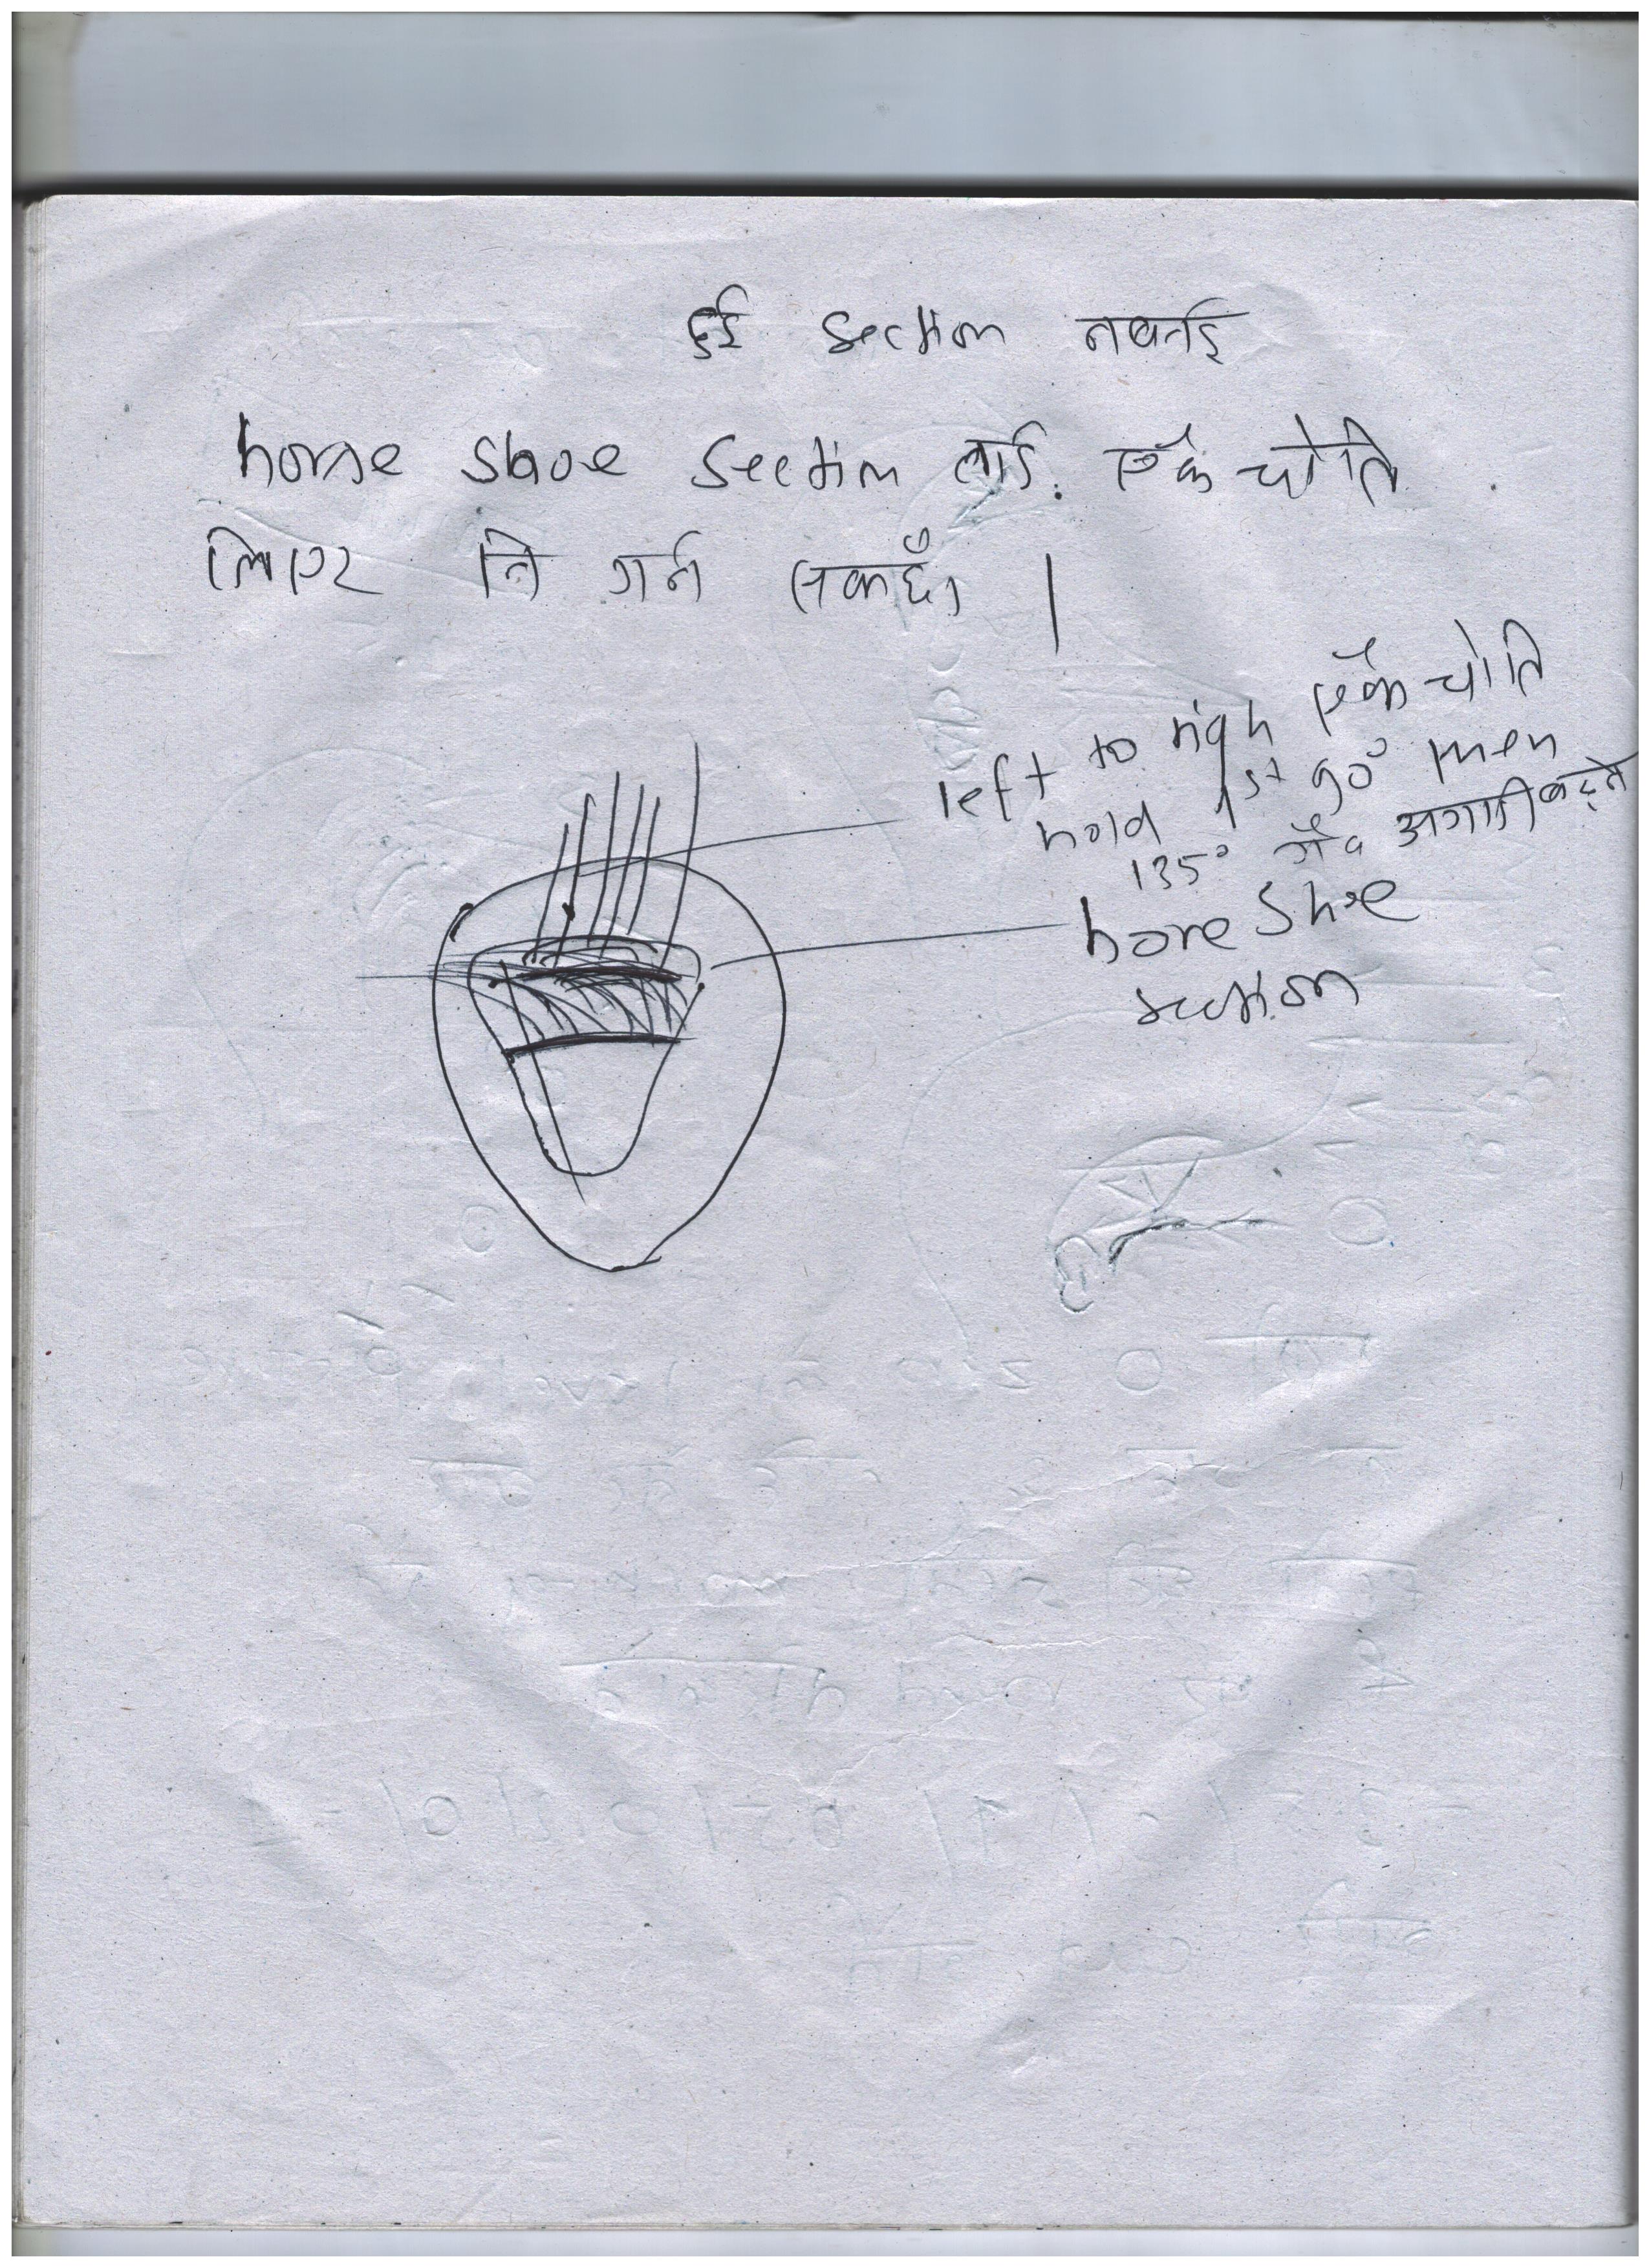 दुई section नबनाई
horse shoe section लाई. एकै चोति
लिएर नि गर्न सकछौ ।
left to righ एकै चोति
hold 1st 90° then
135° मै अगाडी बढ्ने
horse shoe
section